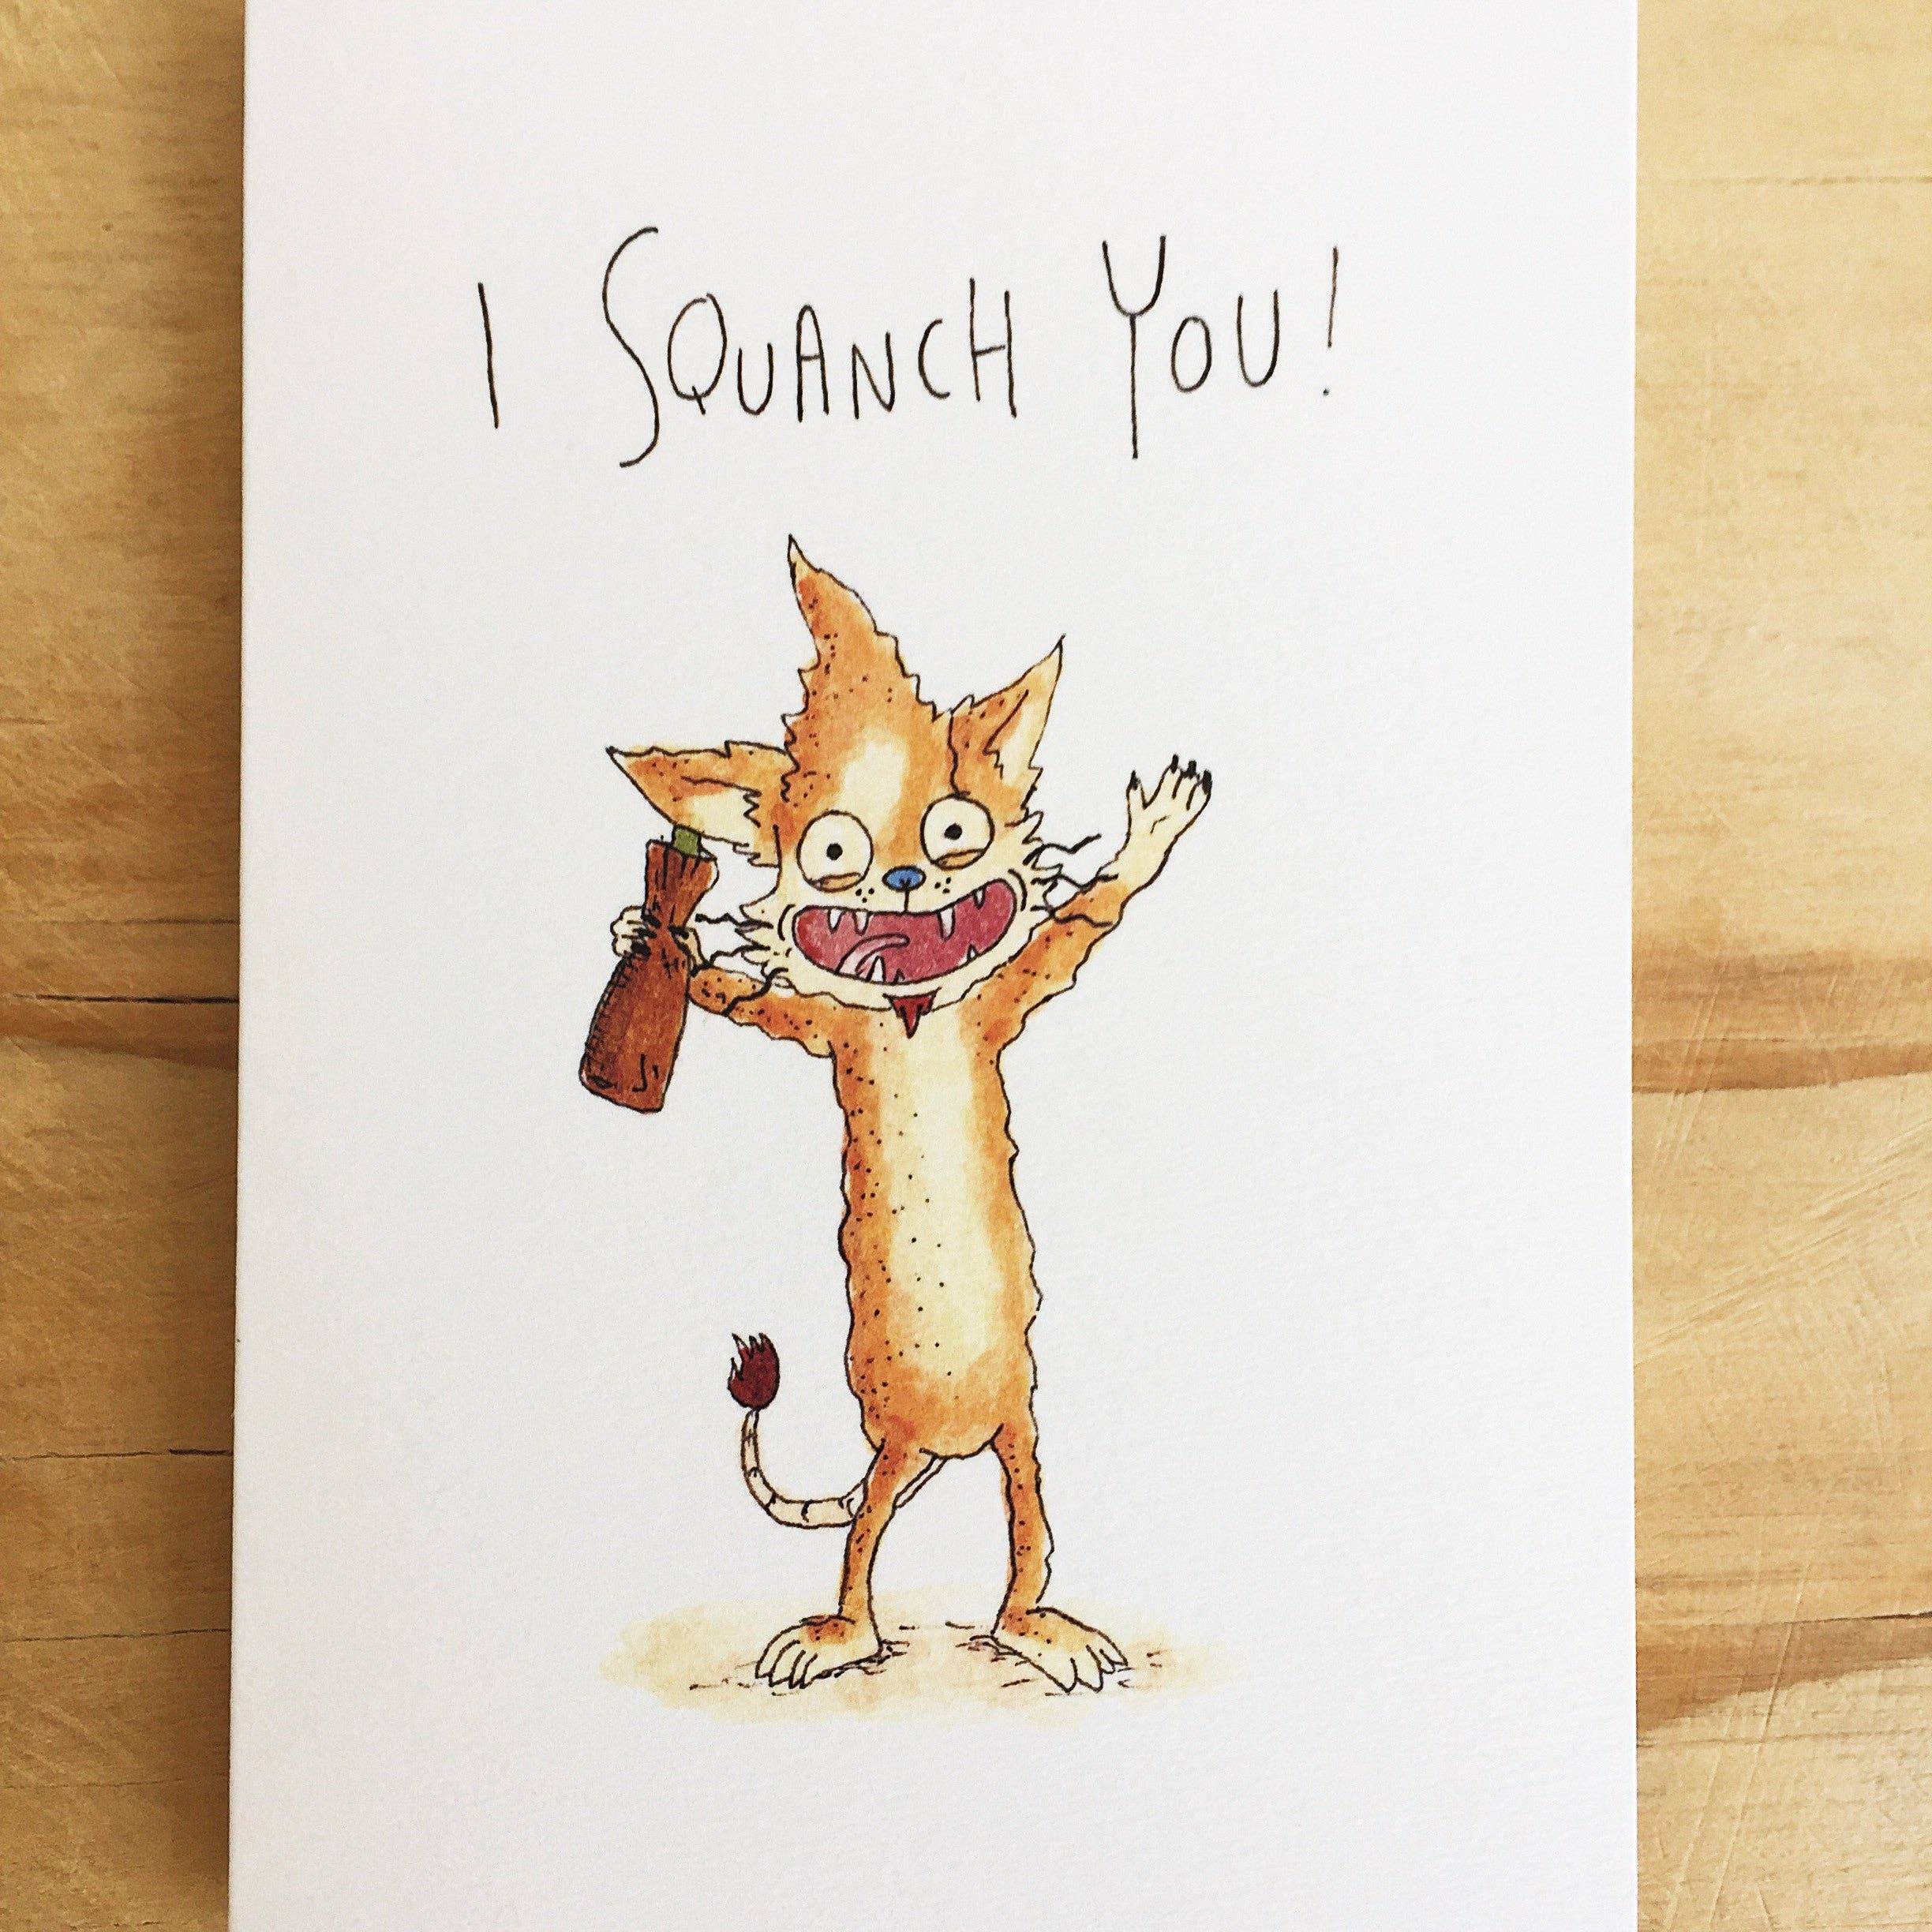 I SQUANCH YOU!